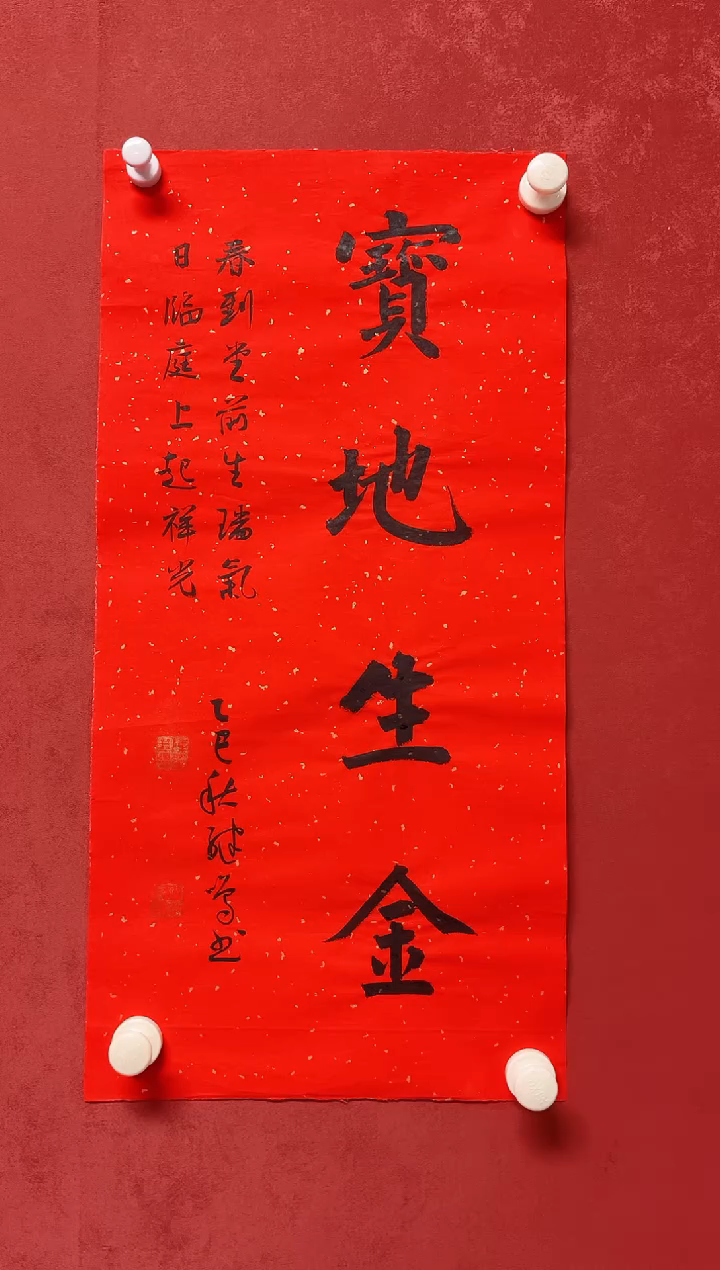 寶地生金
春到堂前生瑞氣
日臨庭上起祥光
乙巳秋继鸾书